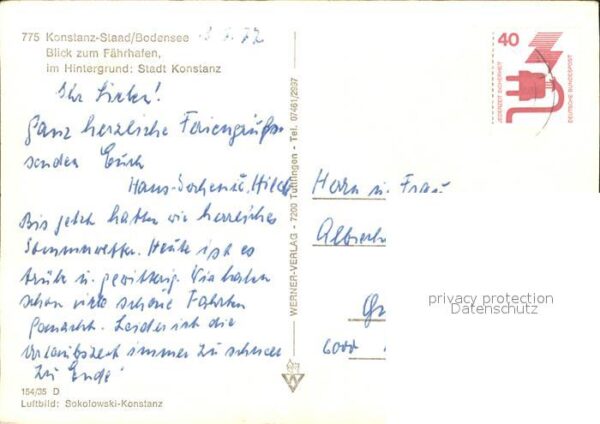 775 Konstanz-Staad/Bodensee
Blick zum Fährhafen,
im Hintergrund: Stadt Konstanz
Ihr Lieben!
Ganz herzliche Feriengrüße
senden Euch
Hans-Jochen u. Hilde
Bis jetzt hatten wir herrliches
Sommerwetter. Heute ist es
trübe u. gewitterig. Wir haben
schon viele schöne Fahrten
gemacht. Leider ist die
Urlaubszeit immer zu schnell
zu Ende!
154/35 D
Luftbild: Sokolowski-Konstanz
WERNER-VERLAG - 7200 Tuttlingen - Tel. 07461/2997
40
JEDERZEIT SICHERHEIT
DEUTSCHE BUNDESPOST
Herrn u. Frau
6000
privacy protection
Datenschutz